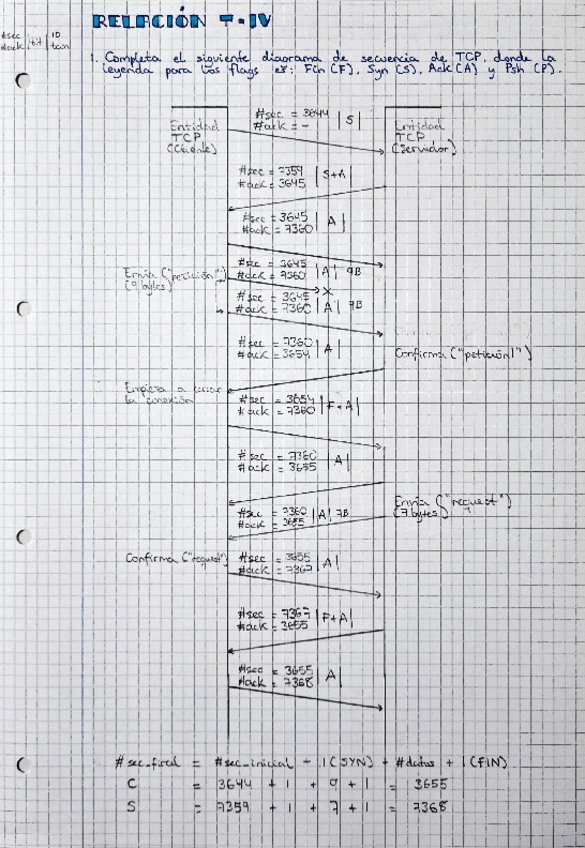 RELACIÓN T-IV
#sec
#ack
1. Completa el siguiente diagrama de secuencia de TCP, donde la
leyenda para los flags es: Fin (F), Syn (S), Ack (A) y Psh (P).
Entidad
TCP
(Cliente)
#sec = 3644
#ack = - | S |
Entidad
TCP
(Servidor)
#sec = 7359
#ack = 3645 | S+A |
#sec = 3645
#ack = 7360 | A |
Envía ("petición")
(9 bytes)
#sec = 3645
#ack = 7360 | A | 9B
X
#sec = 3645
#ack = 7360 | A | 9B
#sec = 7360
#ack = 3654 | A |
Confirma ("petición")
Empieza a cerrar
la conexión
#sec = 3654
#ack = 7360 | F+A |
#sec = 7360
#ack = 3655 | A |
Envía ("request")
(7 bytes)
#sec = 7360
#ack = 3655 | A | 7B
Confirma ("request")
#sec = 3655
#ack = 7367 | A |
#sec = 7367
#ack = 3655 | F+A |
#sec = 3655
#ack = 7368 | A |
#sec_final = #sec_inicial + 1 (SYN) + #datos + 1 (FIN)
C = 3644 + 1 + 9 + 1 = 3655
S = 7359 + 1 + 7 + 1 = 7368